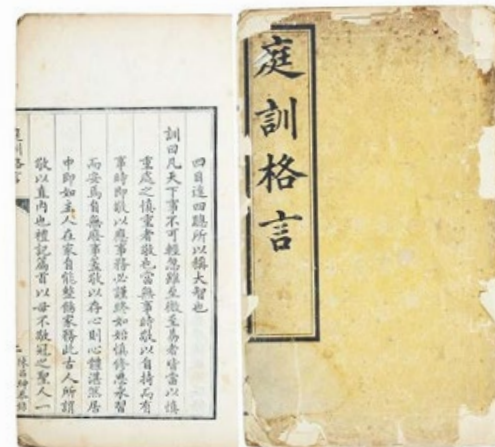 庭訓格言
四目達四聰所以稱大智也
訓曰凡天下事不可輕忽雖至微至易者皆當以慎
重處之慎重者敬也當無事時敬以自持而有
事時即敬以應事務必謹終如始慎修思永習
而安焉自無廢事蓋敬以存心則心體湛然居
中即如主人在家自能整飭家務此古人所謂
敬以直內也禮記篇首以毋不敬冠之聖人一
庭訓格言